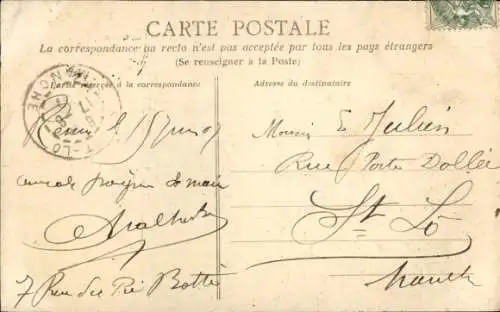 CARTE POSTALE
La correspondance au recto n'est pas acceptée par tous les pays étrangers
(Se renseigner à la Poste)
Partie réservée à la correspondance
Adresse du destinataire
le 15 juin 07
Monsieur E Julien
Rue Porte Dollée
St Lô
Manche
amicale poignée de main
7 Rue du Pré Botté